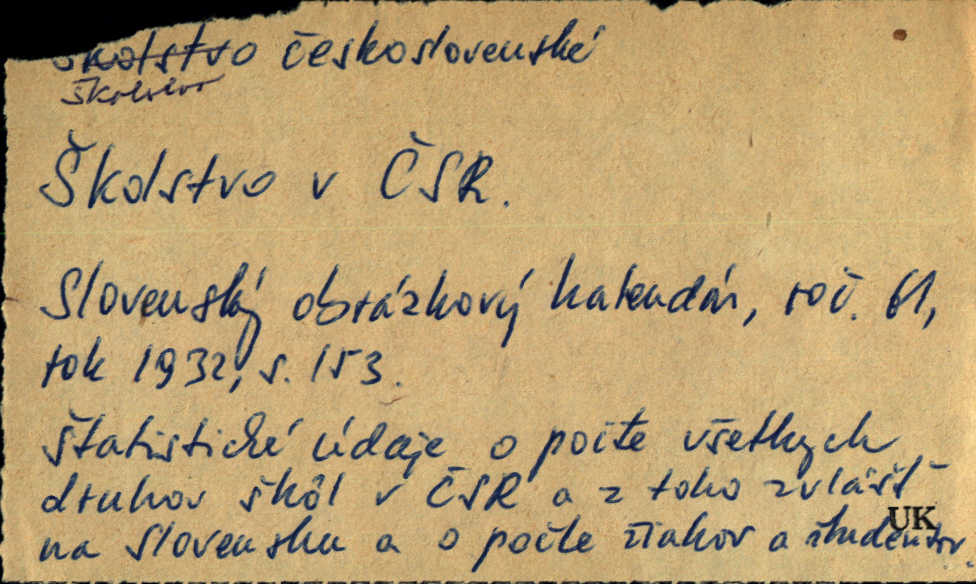 školstvo československé
Školstvo
Školstvo v ČSR.
Slovenský obrázkový kalendár, roč. 61,
rok 1932, s. 153.
Štatistické údaje o počte všetkých
druhov škôl v ČSR a z toho zvlášť
na Slovensku a o počte žiakov a študentov.
UK